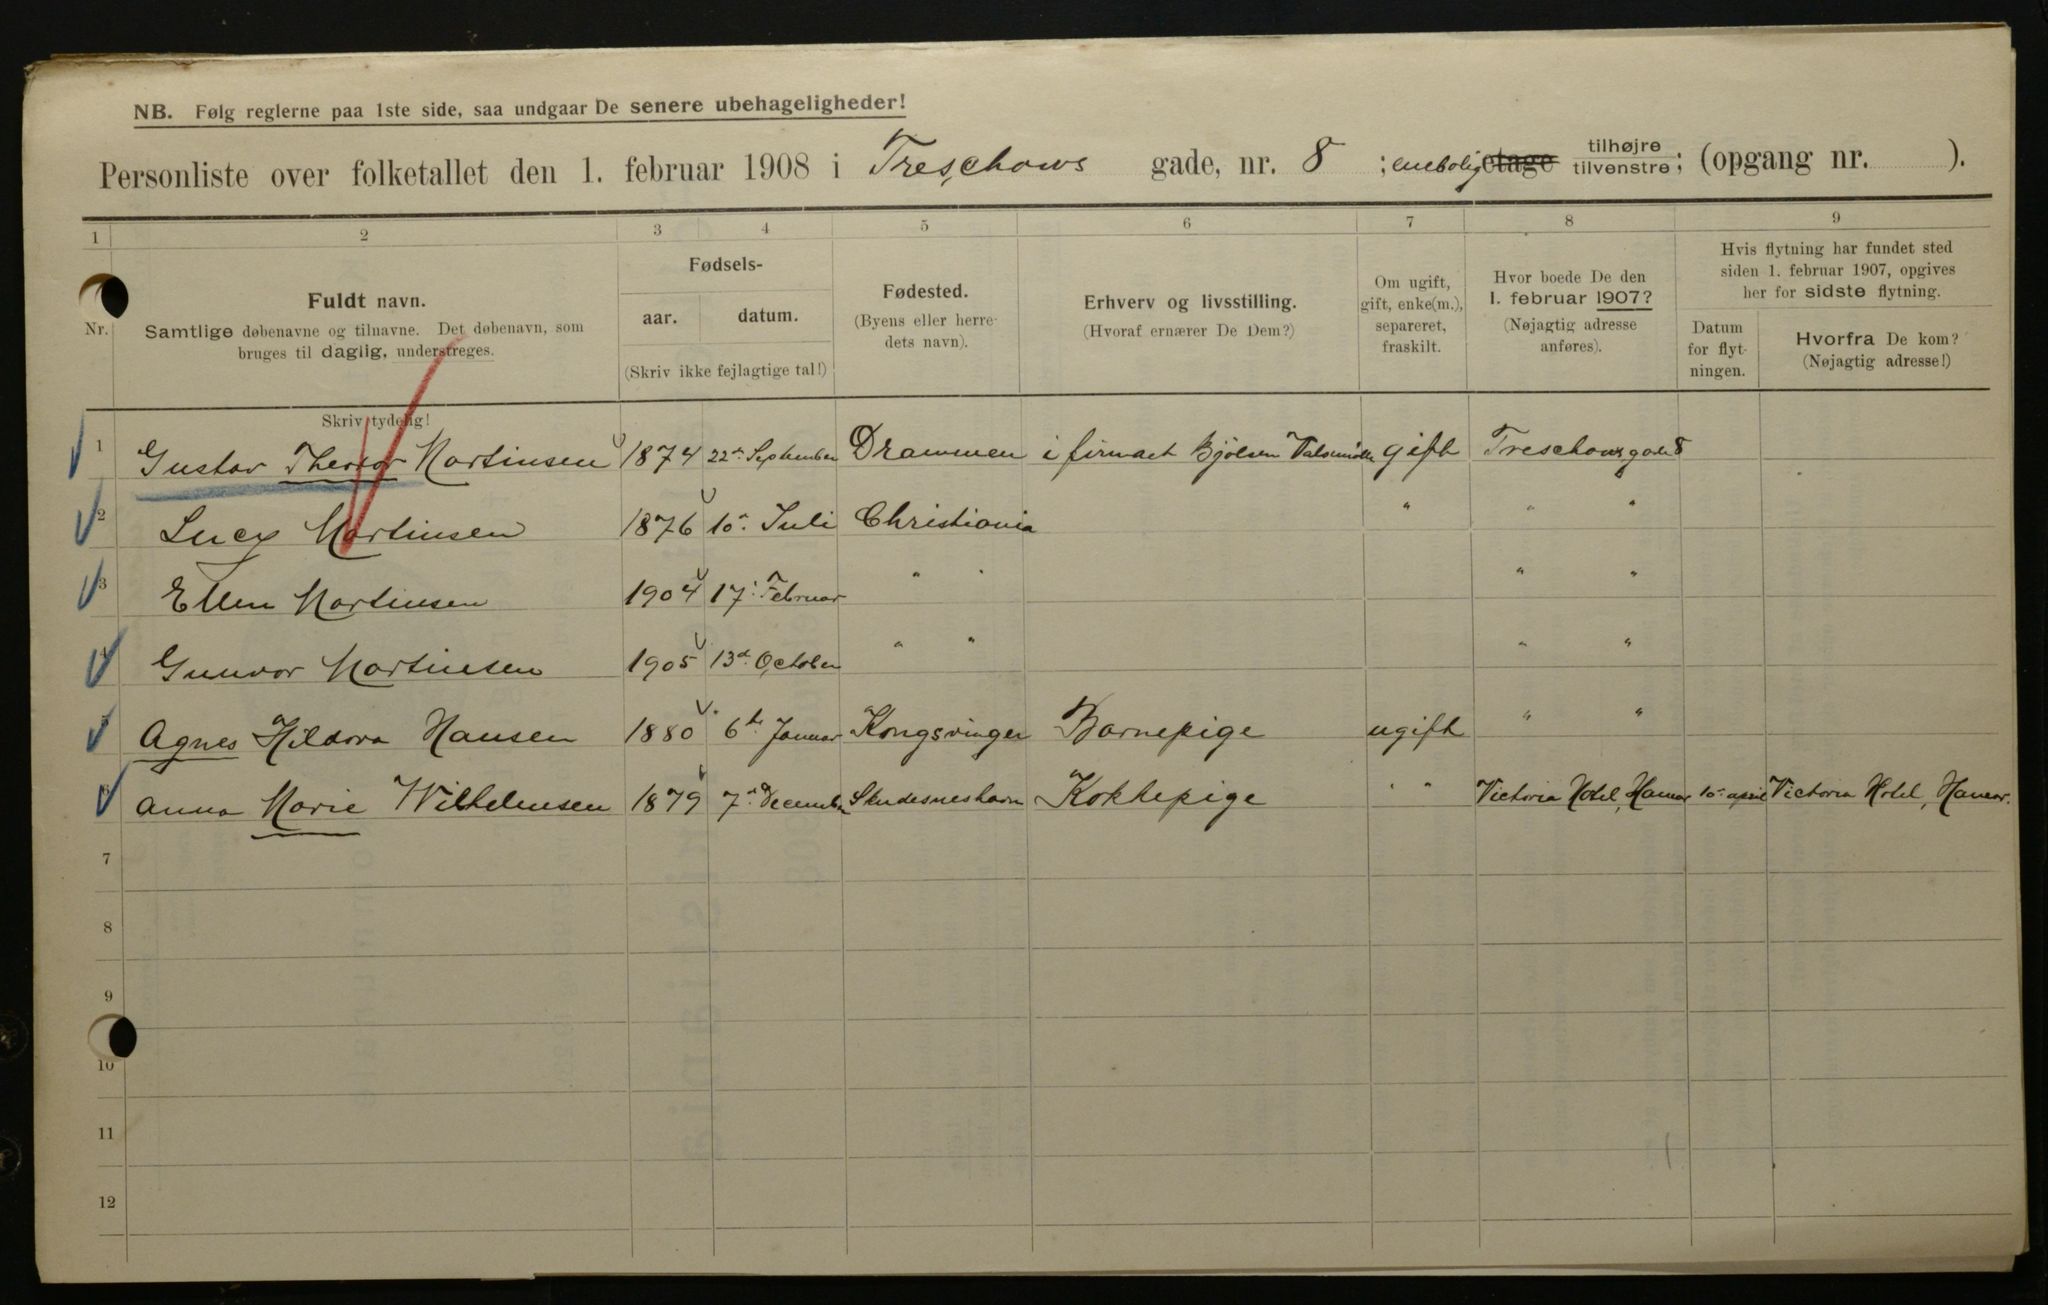 NB. Følg reglerne paa 1ste side, saa undgaar De senere ubehageligheder!
Personliste over folketallet den 1. februar 1908 i Treschows gade, nr. 8 ; enebolig etage tilhøjre tilvenstre; (opgang nr. ).
1 2 3 4 5 6 7 8 9
Nr. Fuldt navn. Samtlige døbenavne og tilnavne. Det døbenavn, som bruges til daglig, understreges.
Fødsels- aar. datum. (Skriv ikke fejlagtige tal!)
Fødested. (Byens eller herredets navn).
Erhverv og livsstilling. (Hvoraf ernærer De Dem?)
Om ugift, gift, enke(m.), separeret, fraskilt.
Hvor boede De den 1. februar 1907? (Nøjagtig adresse anføres).
Hvis flytning har fundet sted siden 1. februar 1907, opgives her for sidste flytning.
Datum for flytningen. Hvorfra De kom? (Nøjagtig adresse!)
Skriv tydelig!
1 Gustav Theodor Martinsen 1874 22de September Drammen i firmaet Bjölsen Valsemölle gift Treschowsgade 8
2 Lucy Martinsen 1876 10de Juli Christiania " " "
3 Ellen Martinsen 1904 17de Februar " " " "
4 Gunvor Martinsen 1905 13de October " " " "
5 Agnes Hildora Hansen 1880 6te Januar Kongsvinger Barnepige ugift " "
6 Anna Marie Wilhelmsen 1879 7de December Skudesneshavn Kokkepige " " Victoria Hotel, Hamar 10de april Victoria Hotel, Hamar.
7
8
9
10
11
12